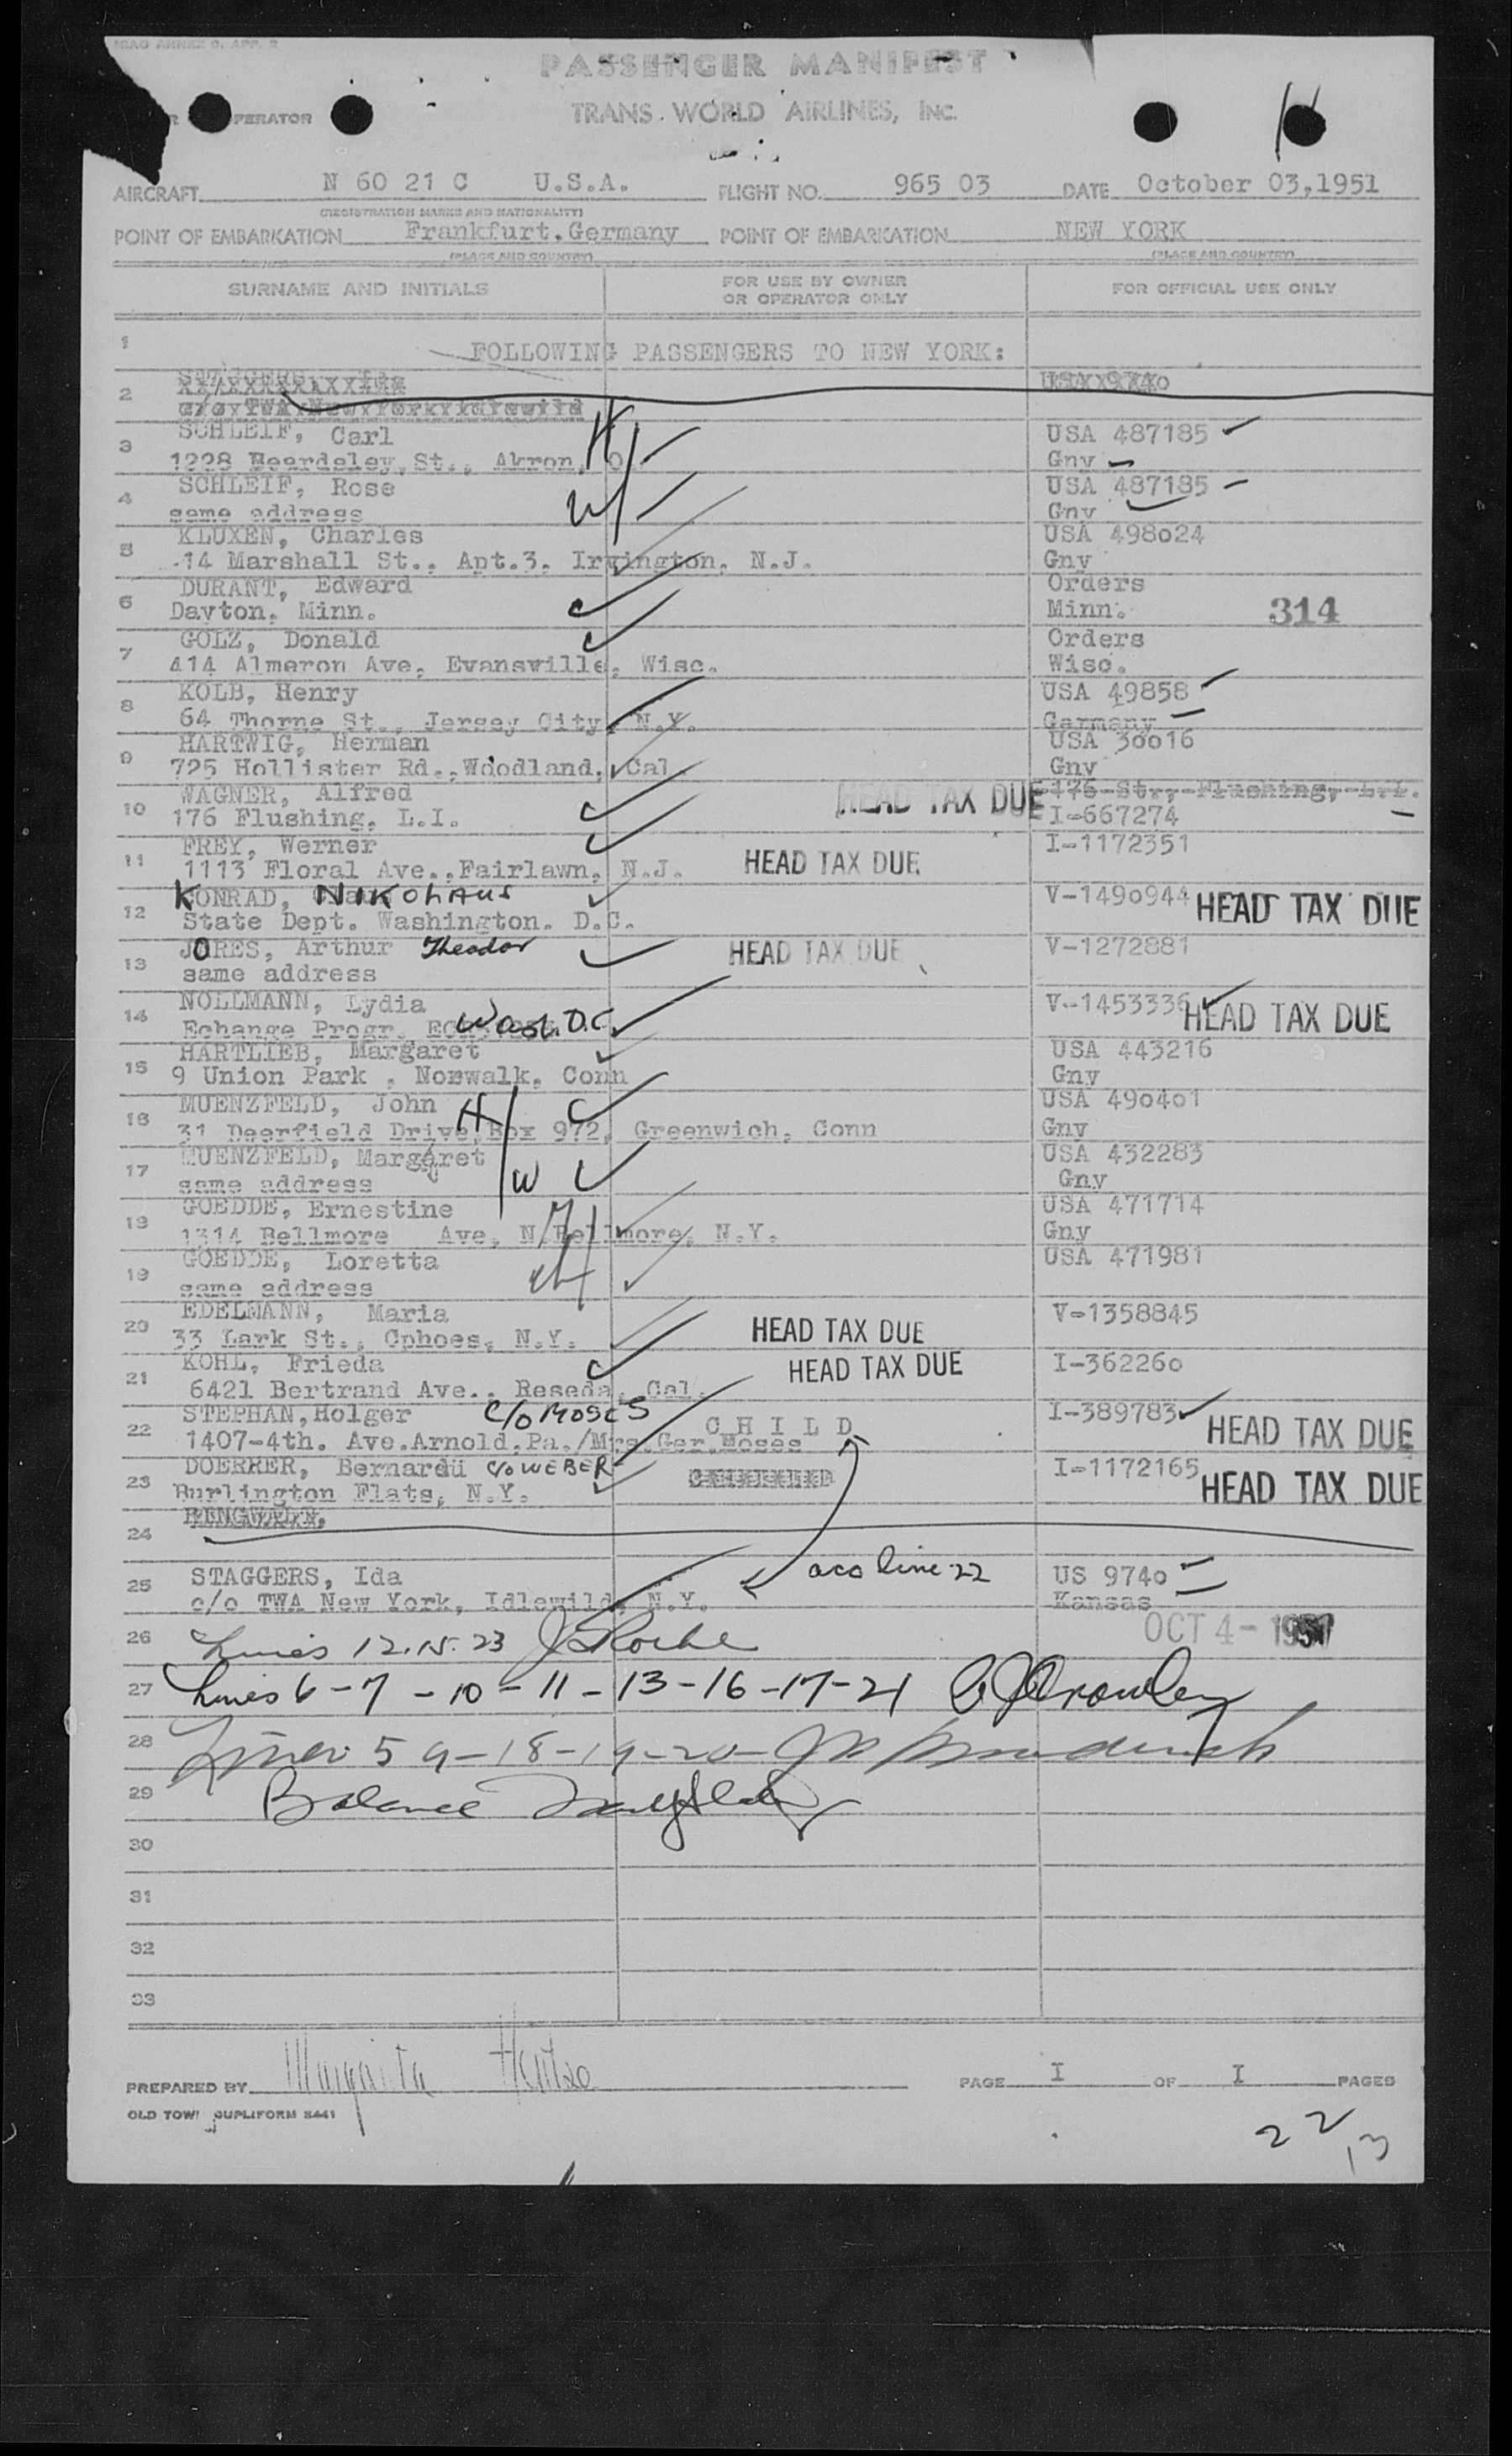 ICAO ANNEX 9, APP. 2
PASSENGER MANIFEST
OPERATOR TRANS WORLD AIRLINES, INC.
AIRCRAFT N 60 21 C U.S.A. FLIGHT NO. 965 03 DATE October 03,1951
(REGISTRATION MARKS AND NATIONALITY)
POINT OF EMBARKATION Frankfurt.Germany POINT OF EMBARKATION NEW YORK
(PLACE AND COUNTRY) (PLACE AND COUNTRY)
SURNAME AND INITIALS FOR USE BY OWNER OR OPERATOR ONLY FOR OFFICIAL USE ONLY
1 FOLLOWING PASSENGERS TO NEW YORK:
2
3 SCHLEIF, Carl H USA 487185
1228 Beardsley St., Akron, O. Gny
4 SCHLEIF, Rose W USA 487185
same address Gny
5 KLUXEN, Charles USA 498o24
14 Marshall St., Apt.3, Irvington, N.J. Gny
6 DURANT, Edward Orders
Dayton, Minn. Minn. 314
7 GOLZ, Donald Orders
414 Almeron Ave, Evansville, Wisc. Wisc.
8 KOLB, Henry USA 49858
64 Thorne St., Jersey City, N.Y. Germany
9 HARTWIG, Herman USA 30o16
725 Hollister Rd.,Woodland, Cal. Gny
10 WAGNER, Alfred HEAD TAX DUE 176 St., Flushing, L.I.
176 Flushing, L.I. I-667274
11 FREY, Werner I-1172351
1113 Floral Ave.,Fairlawn, N.J. HEAD TAX DUE
12 KONRAD, NIKOLAUS V-149o944 HEAD TAX DUE
State Dept. Washington. D.C.
13 JORES, Arthur Theodor HEAD TAX DUE V-1272881
same address
14 NOLLMANN, Lydia V-1453336 HEAD TAX DUE
Echange Progr. Wash. D.C.
15 HARTLIEB, Margaret USA 443216
9 Union Park , Norwalk, Conn Gny
16 MUENZFELD, John H USA 49o4o1
31 Deerfield Drive,Box 972, Greenwich, Conn Gny
17 MUENZFELD, Margaret W USA 432283
same address Gny
18 GOEDDE, Ernestine USA 471714
1314 Bellmore Ave, N/Bellmore, N.Y. Gny
19 GOEDDE, Loretta USA 471981
same address
20 EDELMANN, Maria V-1358845
33 Lark St., Cphoes, N.Y. HEAD TAX DUE
21 KOHL, Frieda HEAD TAX DUE I-36226o
6421 Bertrand Ave., Reseda, Cal.
22 STEPHAN,Holger C/O MOSES C H I L D I-389783 HEAD TAX DUE
1407-4th. Ave.Arnold,Pa./Mrs.Ger.Moses
23 DOERRER, Bernardü C/O WEBER I-1172165 HEAD TAX DUE
Burlington Flats, N.Y.
24
25 STAGGERS, Ida acc line 22 US 974o
c/o TWA New York, Idlewild, N.Y. Kansas
26 Lines 12.15.23 J Roche OCT 4- 1951
27 Lines 6-7-10-11-13-16-17-21
28 Lines 5 9-18-19-20
29 Balance
30
31
32
33
PREPARED BY Margarita PAGE I OF I PAGES
OLD TOWN DUPLIFORM 5441
22
13